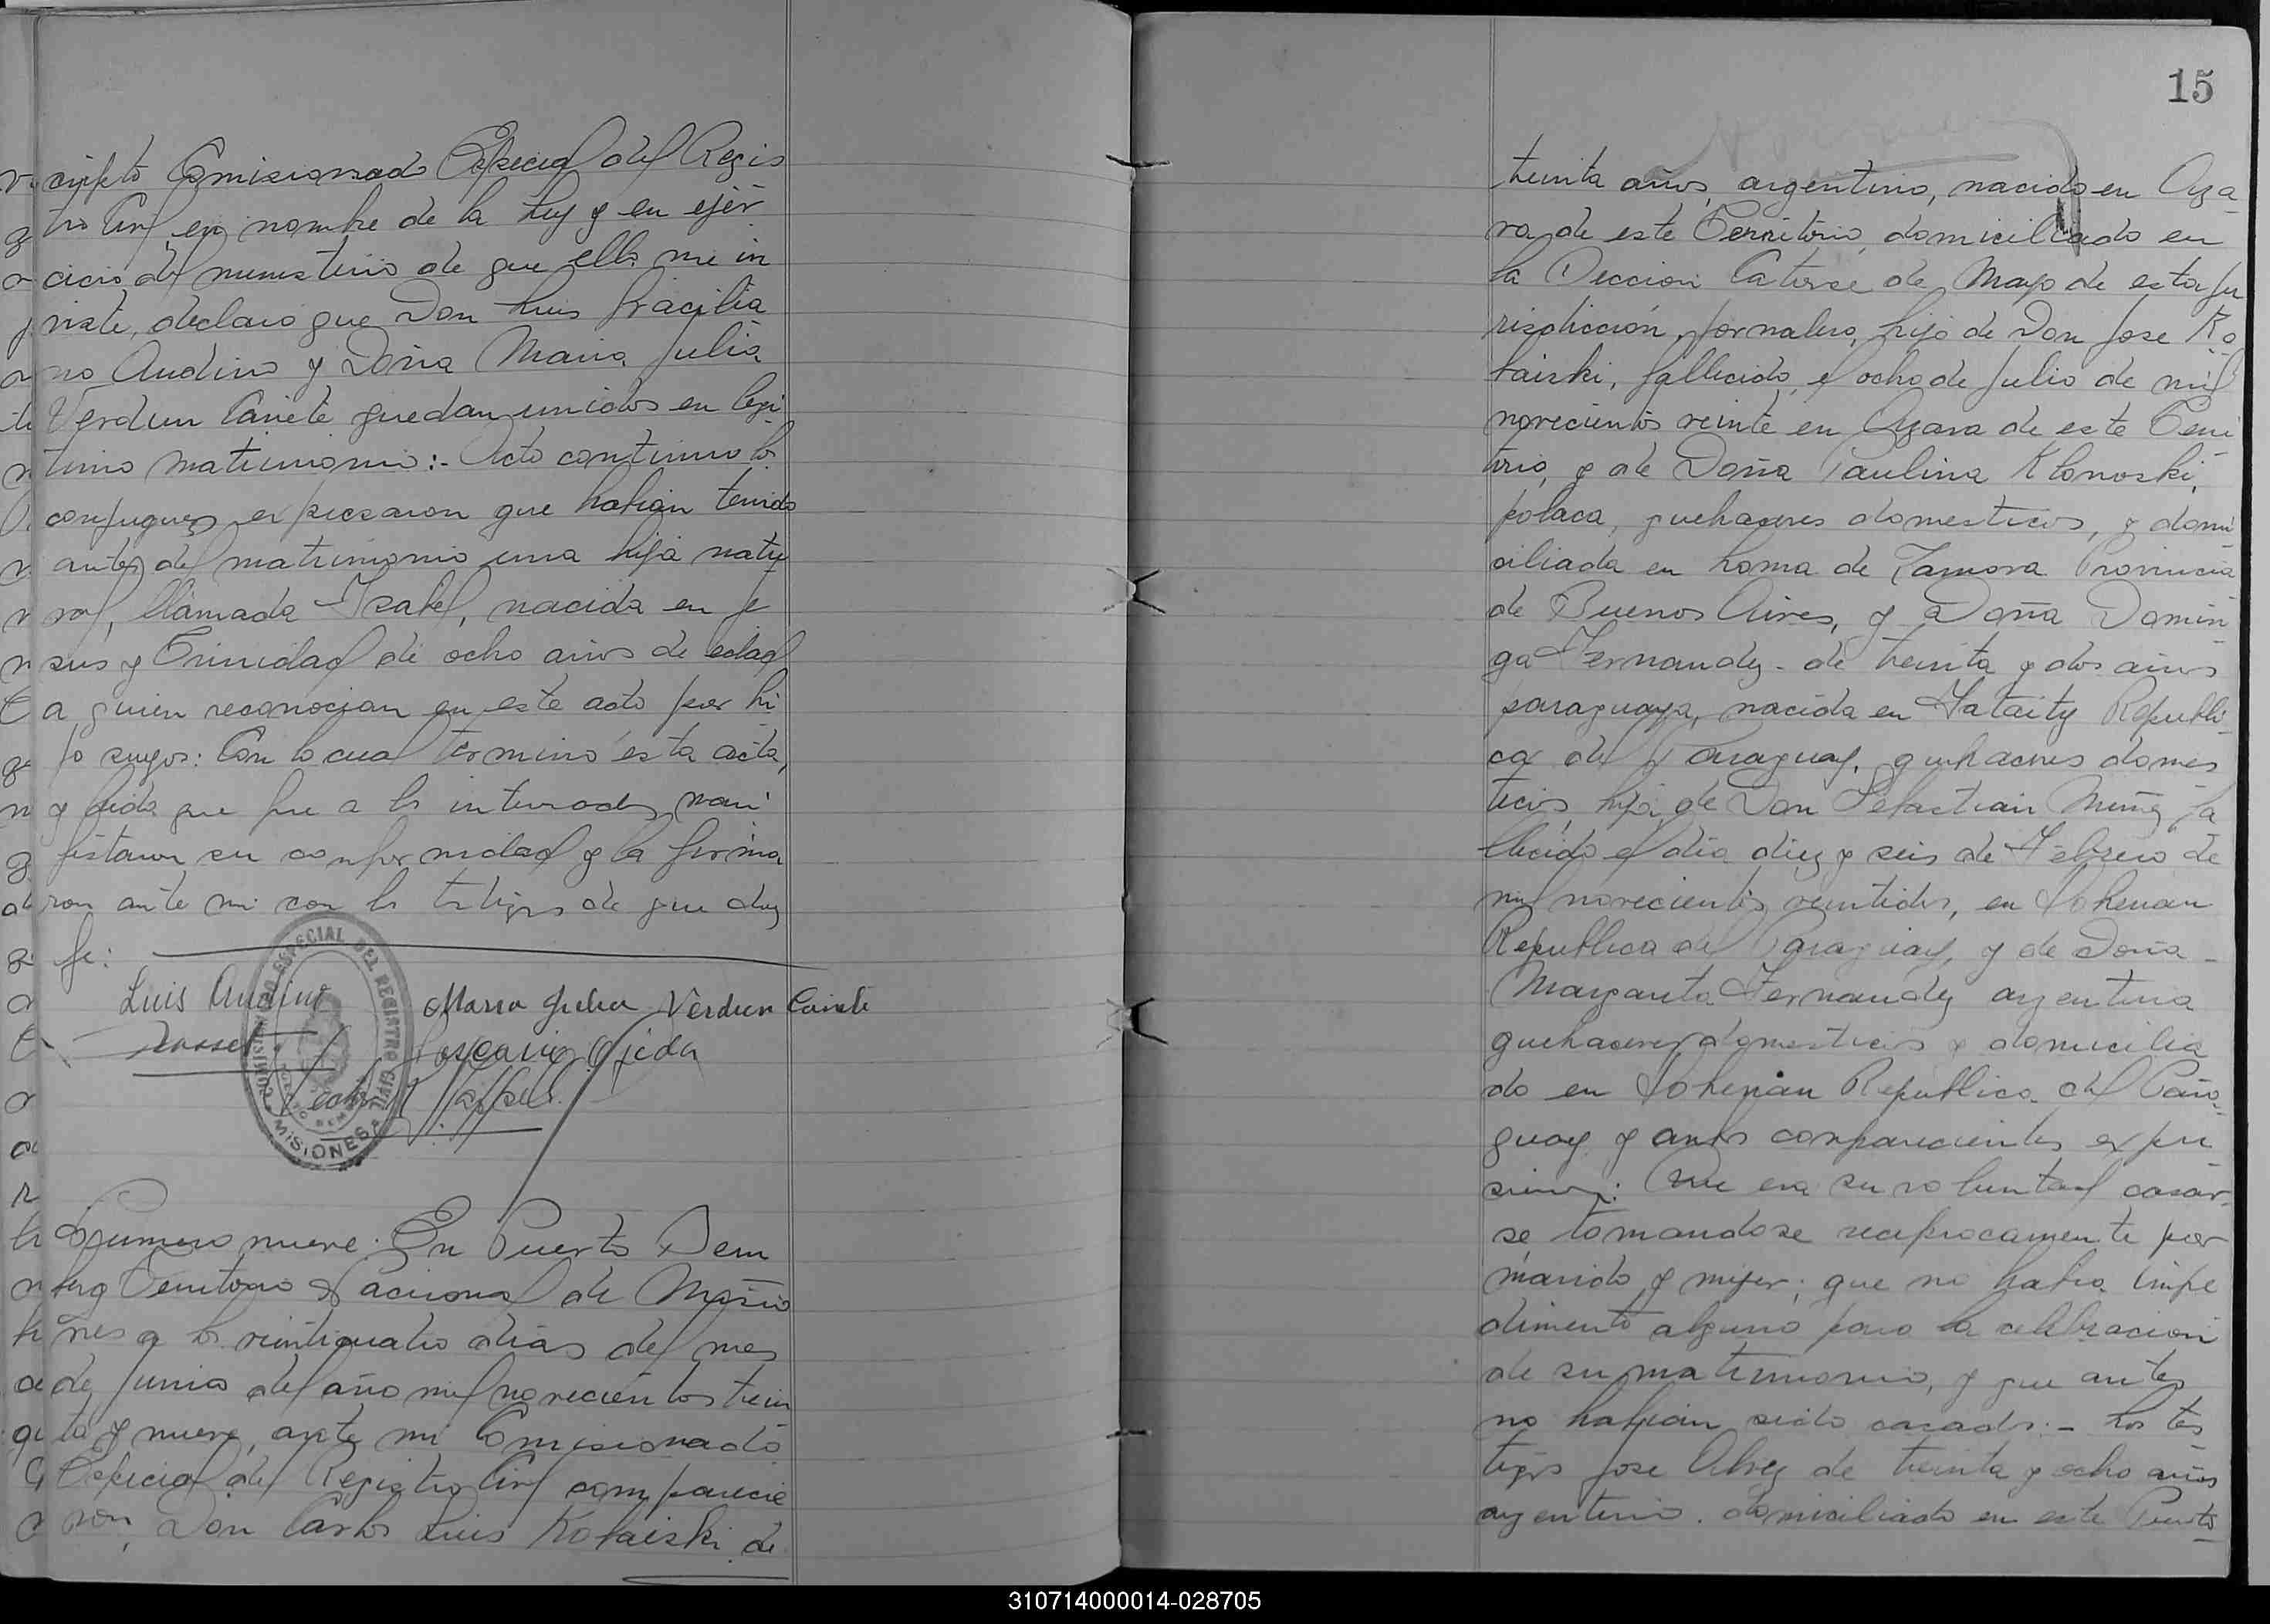 cripto Comisionado Especial del Regis
tro Civil, en nombre de la Ley y en ejer
cicio del ministerio de que ella me in
viste, declaro que Don Luis Gracilia
no Audino y Doña Maria Julia
Verdun Cañete quedan unidos en legi
timo matrimonio:- Acto continuo los
conyugues expresaron que habian tenido
antes del matrimonio una hija natu
ral, llamada Isabel, nacida en Je
sus y Trinidad de ocho años de edad
a quien reconocian en este acto por hi
jo suyos: Con lo cual termino esta acta,
y leida que fue a los interesados mani
festaron su conformidad y la firma
ron ante mi con los testigos de que doy
fe:
Luis Audino Maria Julia Verdun Cañete
Ojeda
COMISIONADO ESPECIAL DEL REGISTRO CIVIL
MISIONES
Numero nueve: En Puerto Bem
berg Territorio Nacional de Misio
nes a los veinticuatro dias del mes
de Junio del año mil novecientos trein
ta y nueve, ante mi Comisionado
Especial del Registro Civil comparecie
ron, Don Carlos Luis Kotaiski de
15
treinta años, argentino, nacido en Aza
ra de este Territorio, domiciliado en
la Seccion Catorce de Mayo de esta Ju
risdicción, jornalero, hijo de Don Jose Ko
taiski, fallecido, el ocho de Julio de mil
novecientos veinte en Azara de este Terri
torio, y de Doña Paulina Klonoski,
polaca, quehaceres domesticos, y domi
ciliada en Loma de Zamora Provincia
de Buenos Aires, y Doña Domin
ga Fernandez de treinta y dos años
paraguaya, nacida en Yataity Republi
ca del Paraguay, quehaceres domes
ticos, hija de Don Sebastian Muñoz, fa
llecido el dia diez y seis de Febrero de
mil novecientos veintidos, en Hohenau
Republica del Paraguay, y de Doña
Margarita Fernandez argentina
quehaceres domesticos y domicilia
do en Hohenau Republica del Para
guay y ambos comparecientes expu
sieron: Que era su voluntad casar
se tomandose reciprocamente por
marido y mujer; que no habia impe
dimento alguno para la celebracion
de su matrimonio, y que antes
no habian sido casados.- Los tes
tigos Jose Alvez de treinta y ocho años
argentino. domiciliado en este Puerto
310714000014-028705